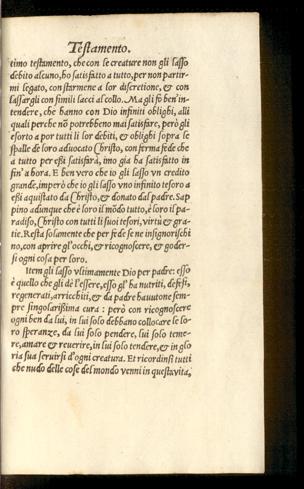 Testamento.
timo testamento, che con se creature non gli lasso
debito alcuno, ho satisfatto a tutto, per non partir-
mi legato, con starmene a lor discretione, & con
lassargli con simili lacci al collo. Ma gli fo ben' in-
tendere, che hanno con Dio infiniti oblighi, alli
quali perche nō potrebbeno mai satisfare, però gli
esorto a por tutti li lor debiti, & oblighi sopra le
spalle de loro aduocato Christo, con ferma fede che
a tutto per essi satisfarà, imo gia ha satisfatto in
fin' a hora. E ben vero che io gli lasso vn credito
grande, imperò che io gli lasso vno infinito tesoro a
essi aquistato da Christo, & donato dal padre. Sap
pino adunque che è loro il mōdo tutto, è loro il pa-
radiso, Christo con tutti li suoi tesori, virtù & gra-
tie. Resta solamente che per fede se ne insignorischi
no, con aprire gl'occhi, & ricognoscere, & goder-
si ogni cosa per loro.
Item gli lasso vltimamente Dio per padre: esso
è quello che gli dè l'essere, esso gl' ha nutriti, defesi,
regenerati, arricchiti, & da padre hauutone sem-
pre singolarissima cura : però con ricognoscere
ogni ben da lui, in lui solo debbano collocare le lo-
ro speranze, da lui solo pendere, lui solo teme-
re, amare & reuerire, in lui solo tendere, & in glo
ria sua seruirsi d'ogni creatura. Et ricordinsi tutti
che nudo delle cose del mondo venni in questa vita,